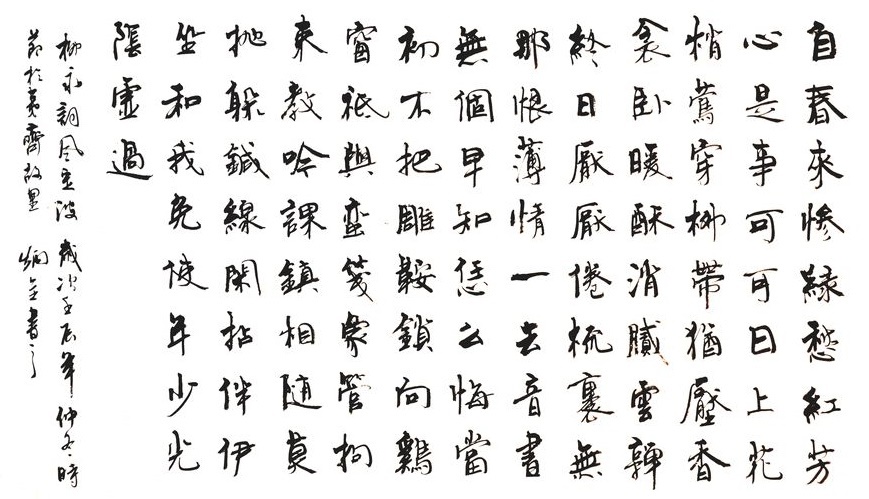 自春來慘綠愁紅芳
心是事可可日上花
梢鶯穿柳帶猶壓香
衾卧暖酥消膩雲嚲
終日厭厭倦梳裹無
那恨薄情一去音書
無個早知恁么悔當
初不把雕鞍鎖向鷄
窗祗與蛮箋象管拘
束教吟課鎮相随莫
抛躲鍼線閑拈伴伊
坐和我免使年少光
陰虛過
柳永詞定風波歲次壬辰年仲冬時
節於黄齊故里 炳全書之